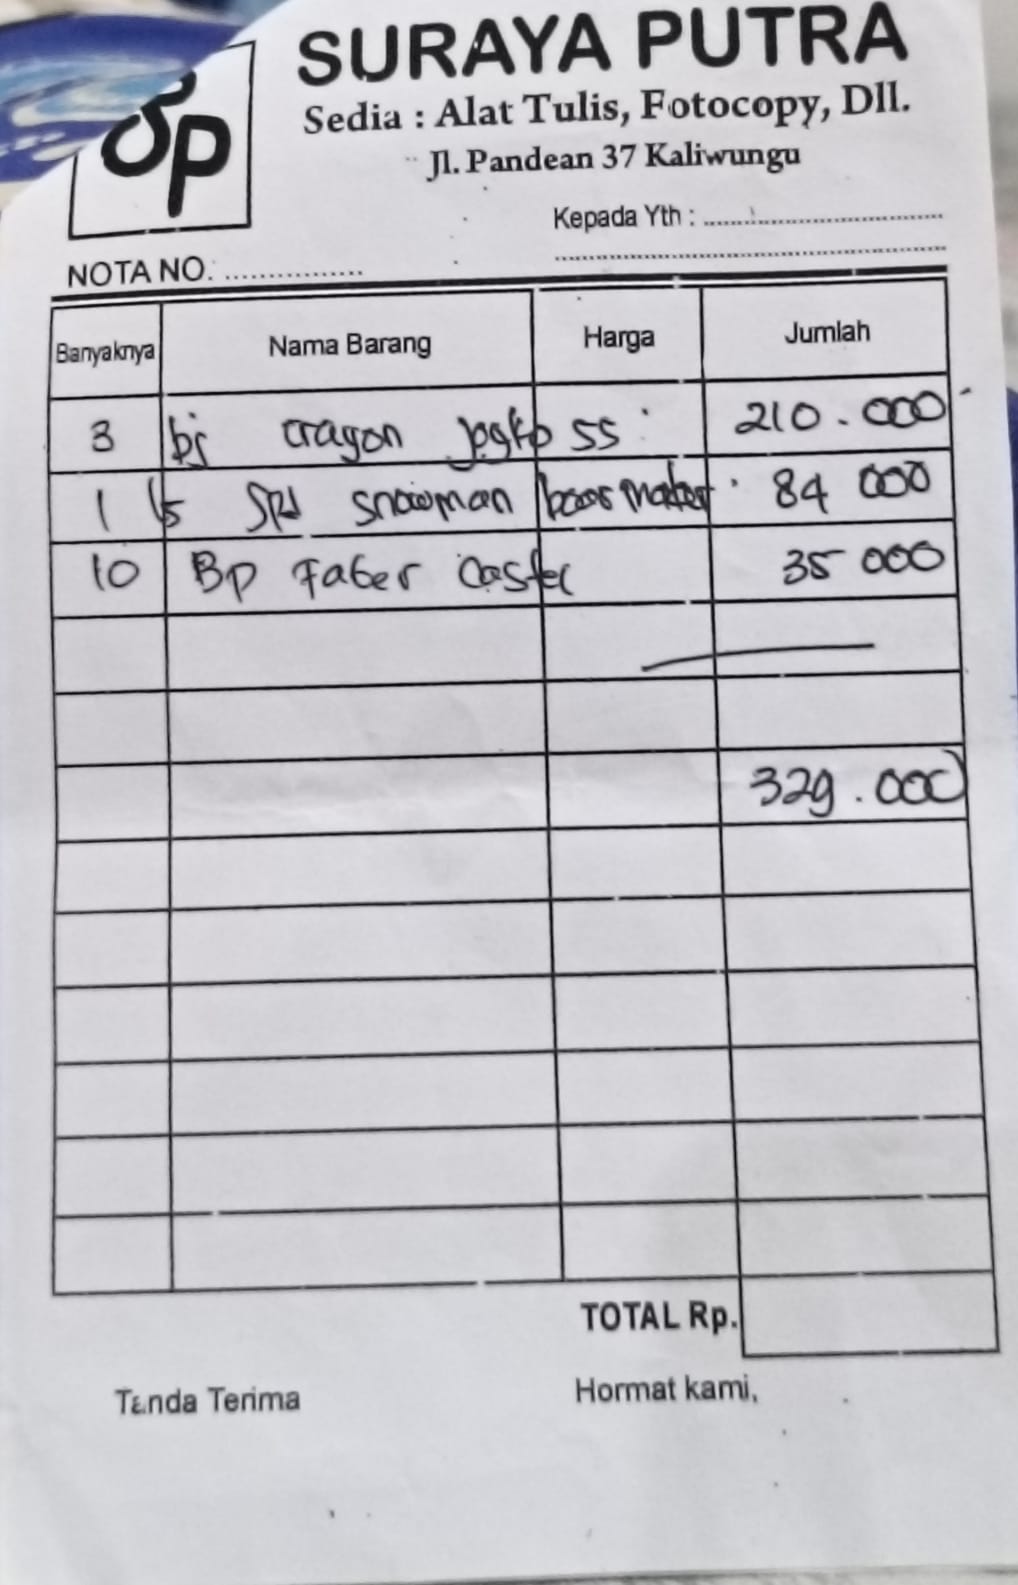 SURAYA PUTRA
Sedia : Alat Tulis, Fotocopy, Dll.
Jl. Pandean 37 Kaliwungu
Sp
Kepada Yth : ......................
NOTA NO. ...............
Banyaknya Nama Barang Harga Jumlah
3 bj crayon 55 210.000
1 snowman 84 000
10 Bp Faber Castel 35 000
329.000
TOTAL Rp.
Tanda Terima Hormat kami,